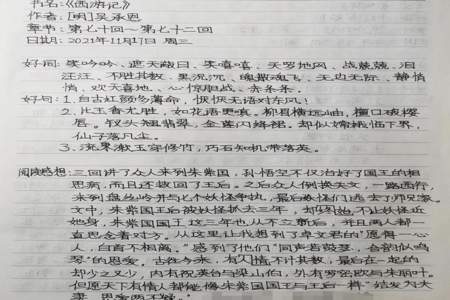 书名:《西游记》
作者:[明]吴承恩
章节:第七十回~第七十二回
日期:2021年11月17日 周三
好词:笑吟吟、遮天蔽日、笑嘻嘻、天罗地网、战兢兢、泪
汪汪、不胜其数、黑沉沉、魂飞魄散、无边无际、静悄
悄、欢天喜地、心惊胆战、赤条条。
好句:1.自古红颜多薄命,恹恹无语对东风!
2.比玉香尤胜,如花语更真。柳眉横远岫,檀口破樱
唇。钗头翘翡翠,金莲闪绛裙。却似嫦娥临下界,
仙子落凡尘。
3.流果漱玉穿修竹,巧石知机带落英。
阅读感想:三回讲了众人来到朱紫国,孙悟空不仅治好了国王的相
思病,而且还救回了王后。之后众人倒换关文,一路西行,
来到盘丝岭并与七个妖怪争执,最后妖怪们逃去了师兄家。
文中,朱紫国王后被妖怪抓去三年,却始终不让妖怪近
她身,朱紫国国王这三年也从不立新后,并且两人都一
直思念着对方。从这里让我想到了卓文君的“愿得一心
人,白首不相离。”感到了他们“同声若鼓瑟,合韵似鸣
琴”的恩爱。古往今来,有情人不计其数,最后在一起的
却少之又少,内有祝英台与梁山伯,外有罗密欧与朱丽叶。
但愿天下有情人都能像朱紫国国王与王后一样“结发为夫
妻,恩爱两不疑。”